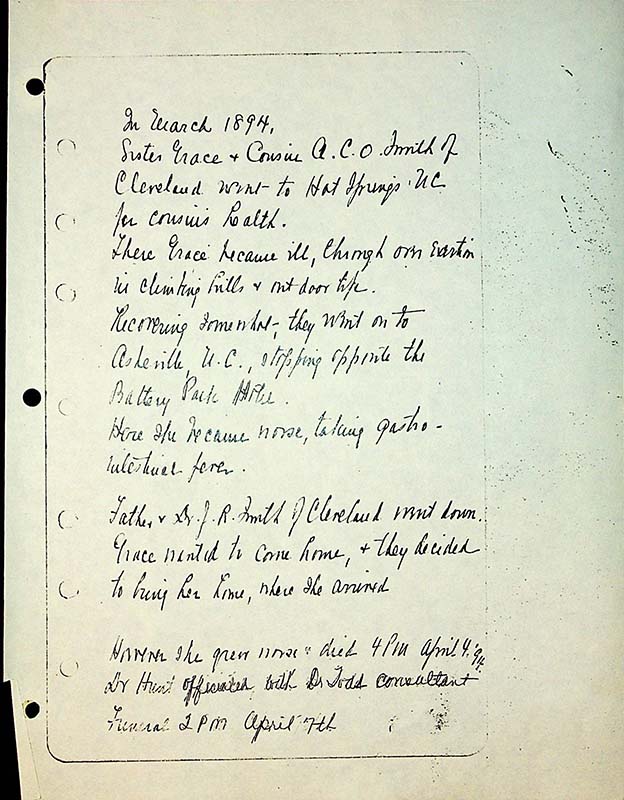 In March 1894,
Sister Grace & Cousin A.C.O. Smith of
Cleveland went to Hot Springs N.C
for cousin's health.
There Grace became ill, through over exertion
in climbing hills & out door life.
Recovering somewhat, they went on to
Asheville, N.C., stopping opposite the
Battery Park Hotel.
Here she became worse, taking gastro-
intestinal fever.
Father & Dr. J. R. Smith of Cleveland went down.
Grace wanted to come home, & they decided
to bring her home, where she arrived
However she grew worse & died 4 PM April 4. '94.
Dr Hunt officiated with Dr Todd consultant
Funeral 2 PM April 7th